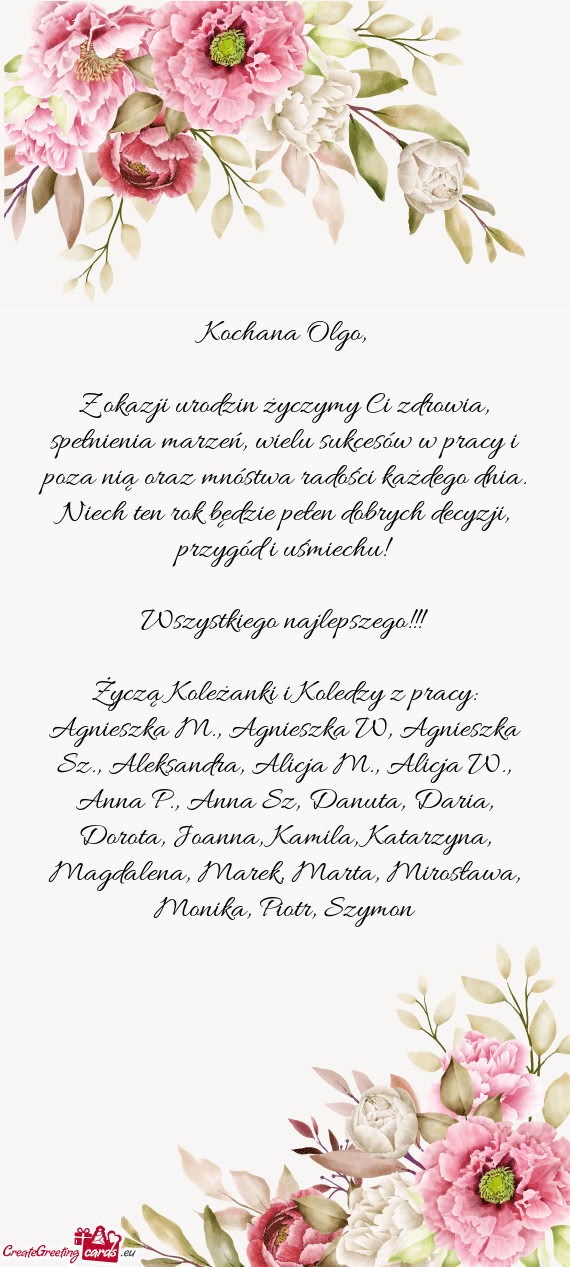 Kochana Olgo,
Z okazji urodzin życzymy Ci zdrowia,
spełnienia marzeń, wielu sukcesów w pracy i
poza nią oraz mnóstwa radości każdego dnia.
Niech ten rok będzie pełen dobrych decyzji,
przygód i uśmiechu!
Wszystkiego najlepszego!!!
Życzą Koleżanki i Koledzy z pracy:
Agnieszka M., Agnieszka W, Agnieszka
Sz., Aleksandra, Alicja M., Alicja W.,
Anna P., Anna Sz, Danuta, Daria,
Dorota, Joanna, Kamila, Katarzyna,
Magdalena, Marek, Marta, Mirosława,
Monika, Piotr, Szymon
CreateGreeting cards .eu